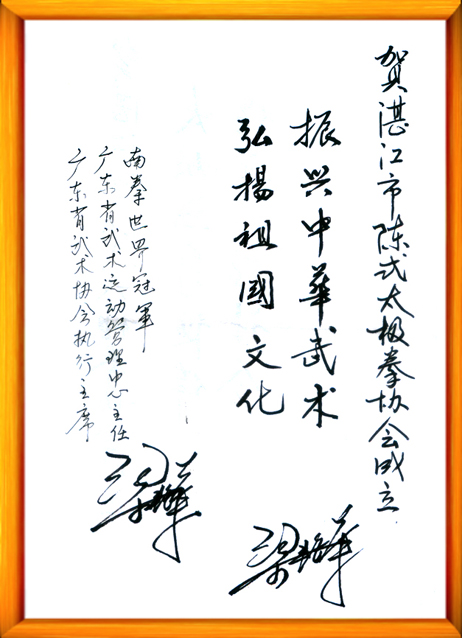 贺湛江市陈式太极拳协会成立
振兴中華武术
弘揚祖國文化
南拳世界冠军
广东省武术运动管理中心主任
广东省武术协会执行主席